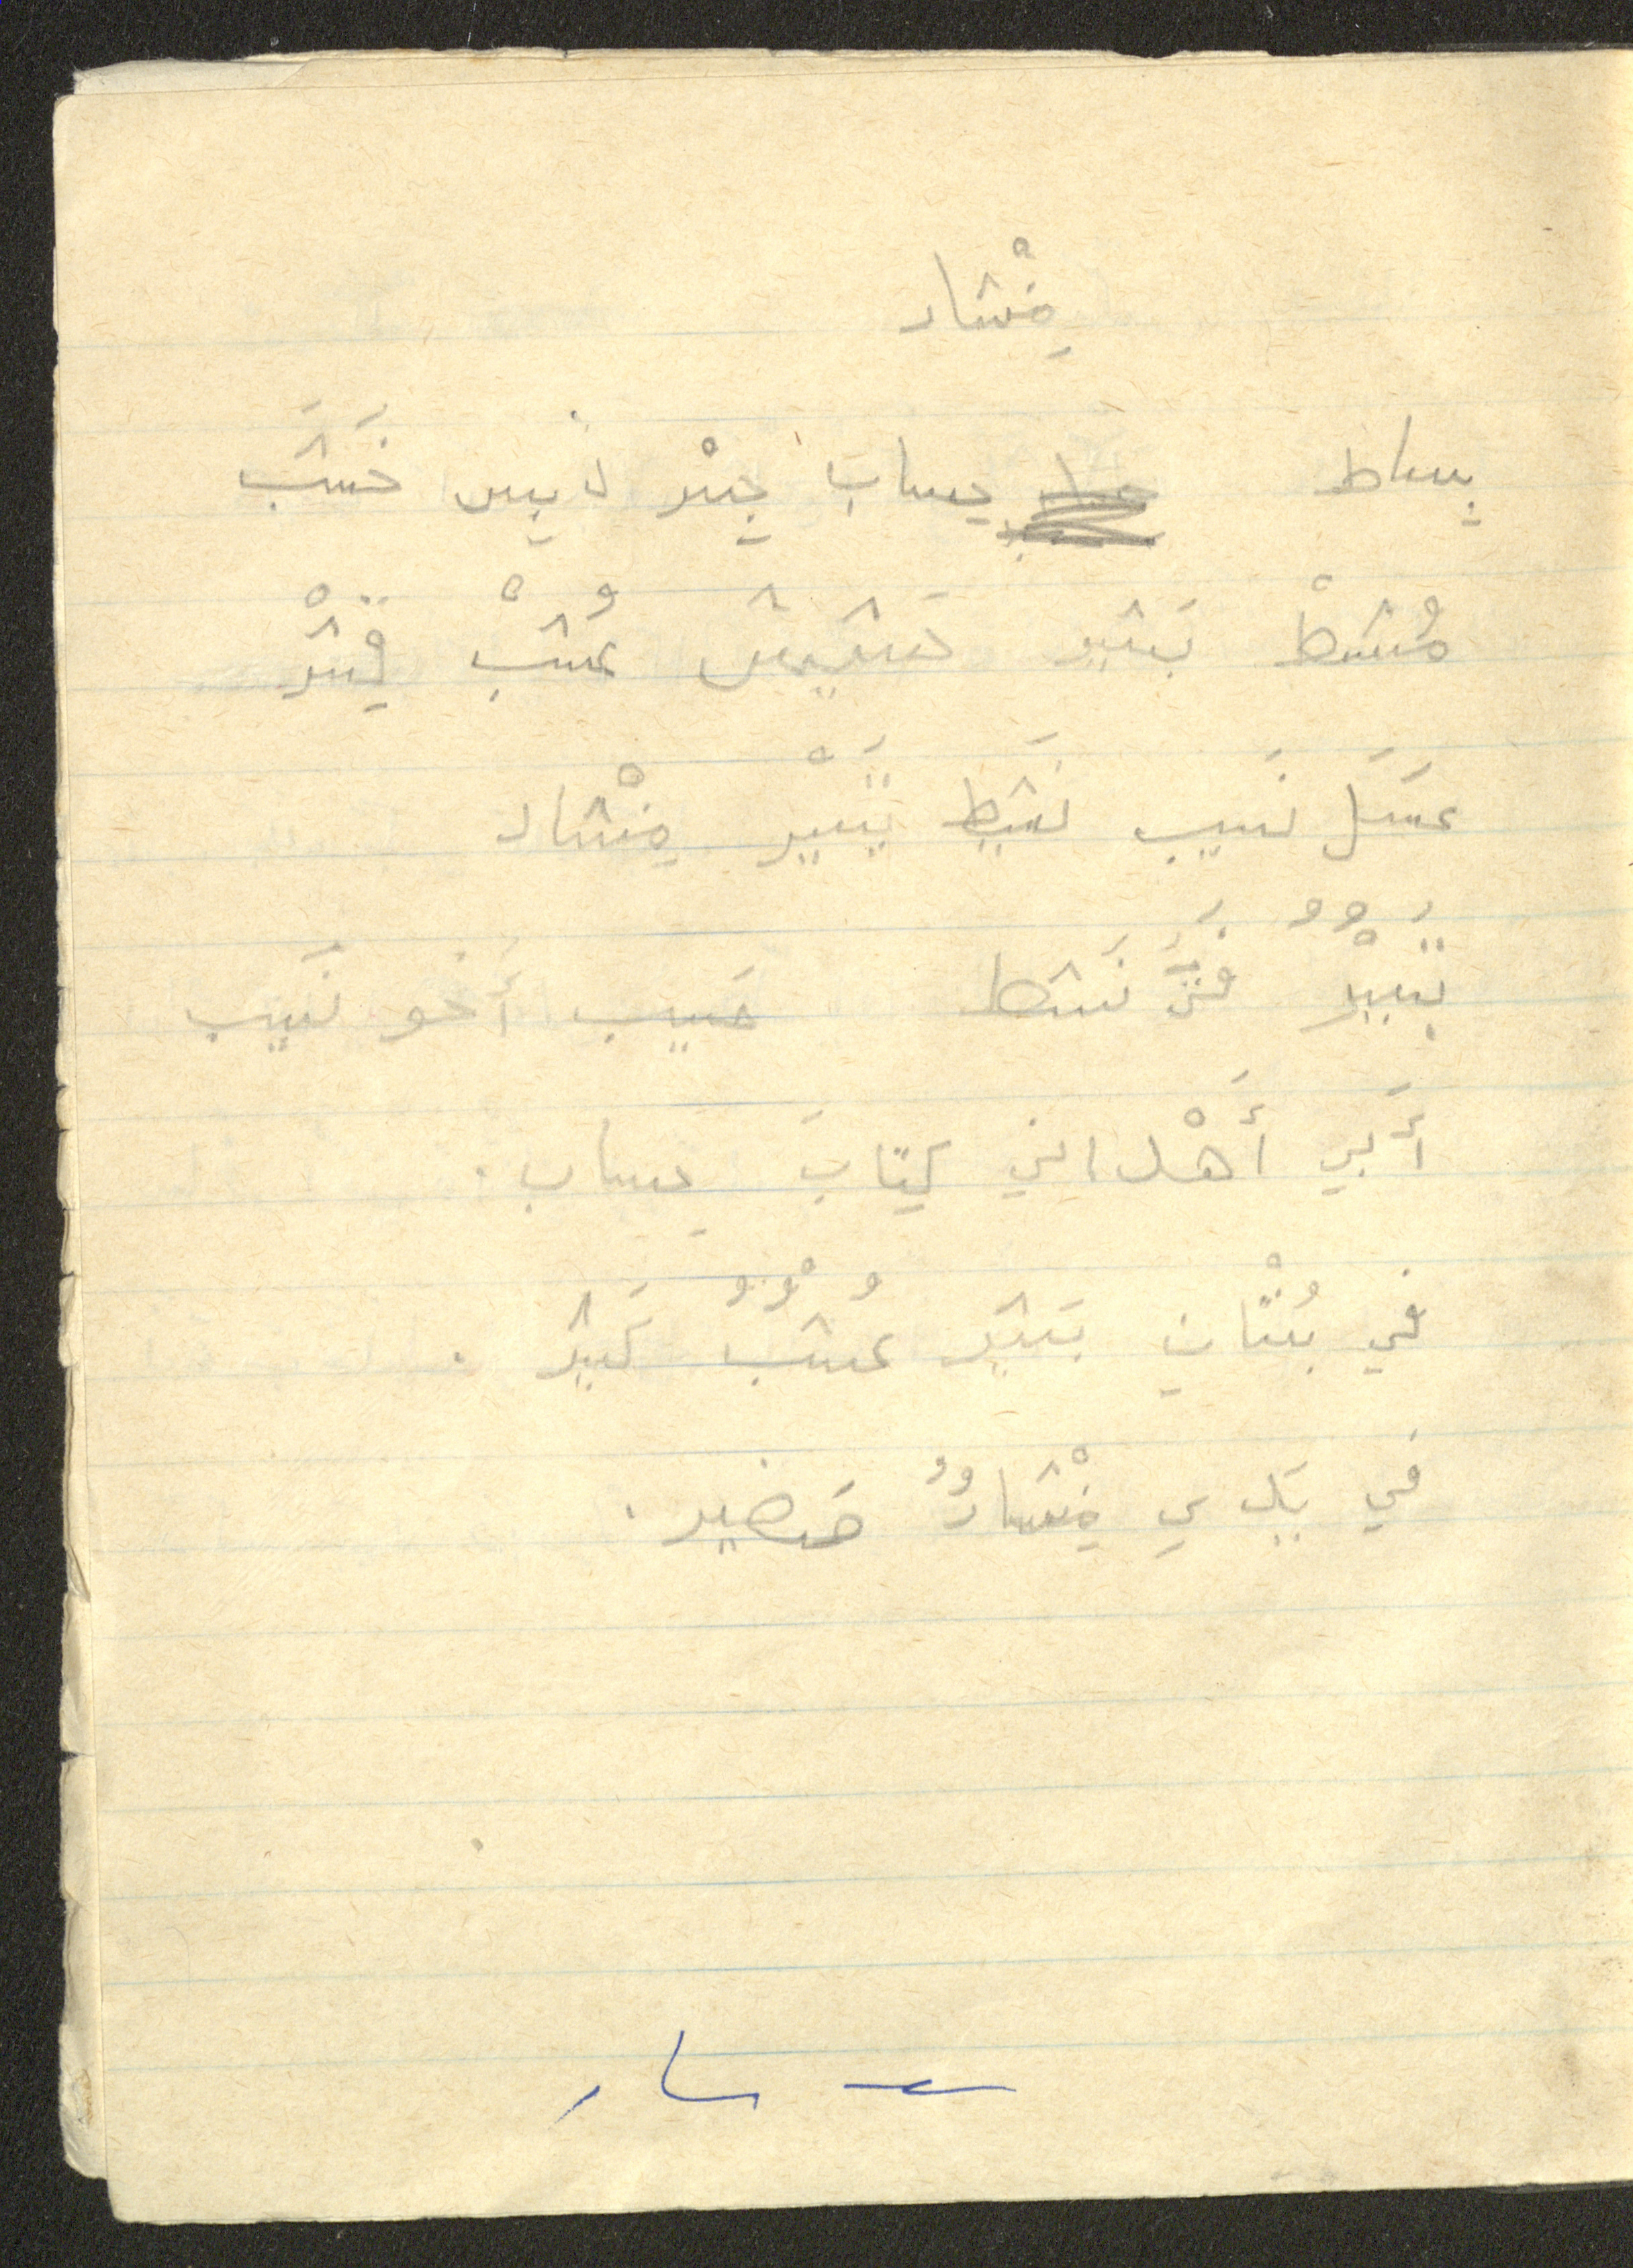 مِنْشار
بِساط حِساب جِسْر لا بِس خَشَب
مُشْط بَشير حَشيش عُشْب قِشْر
عَسَل نَسيب نَشيط يَسْير مِنْشار
نَشَط حَسيب أَخو نَسيب
أَبي أَهْداني كِتابَ حِساب.
في بُسْتانِ بَشير عُشْبٌ كَبيرٌ.
في يَدي مِنْشارٌ صَغير.